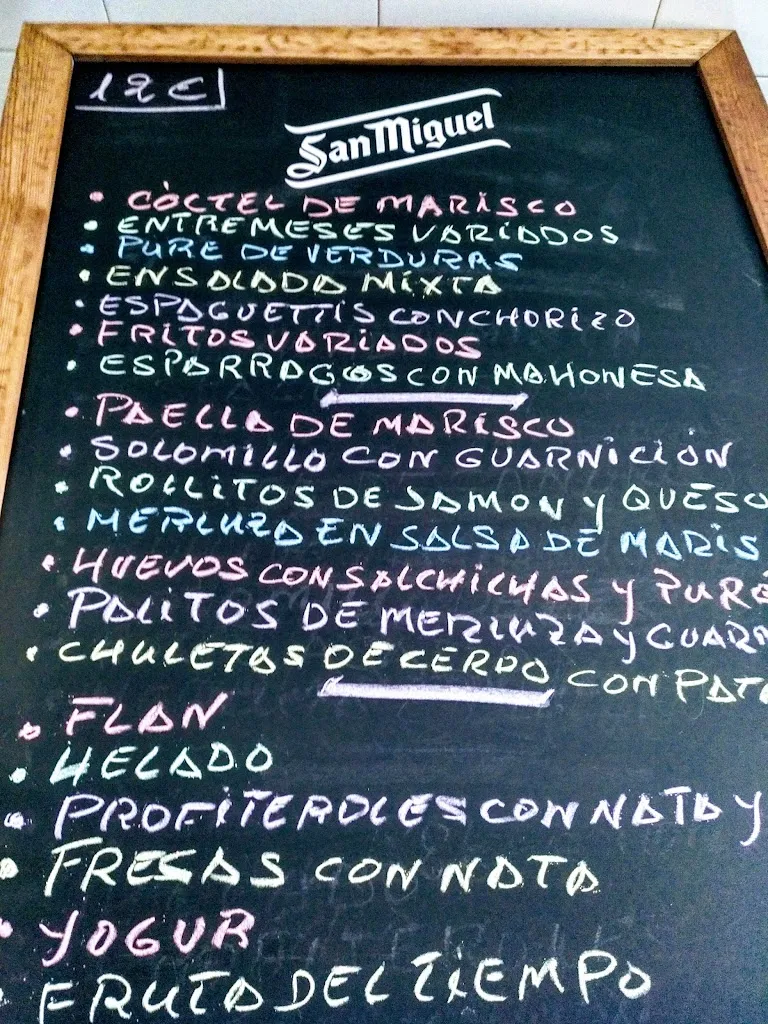 12€
San Miguel
• CÓCTEL DE MARISCO
• ENTREMESES VARIADOS
• PURE DE VERDURAS
• ENSALADA MIXTA
• ESPAGUETTIS CON CHORIZO
• FRITOS VARIADOS
• ESPARRAGOS CON MAHONESA
• PAELLA DE MARISCO
• SOLOMILLO CON GUARNICIÓN
• ROLLITOS DE JAMON Y QUESO
• MERLUZA EN SALSA DE MARIS
• HUEVOS CON SALCHICHAS Y PURÉ
• PALITOS DE MERLUZA Y GUARN
• CHULETAS DE CERDO CON PATA
• FLAN
• HELADO
• PROFITEROLES CON NATA Y
• FRESAS CON NATA
• YOGUR
FRUTA DEL TIEMPO